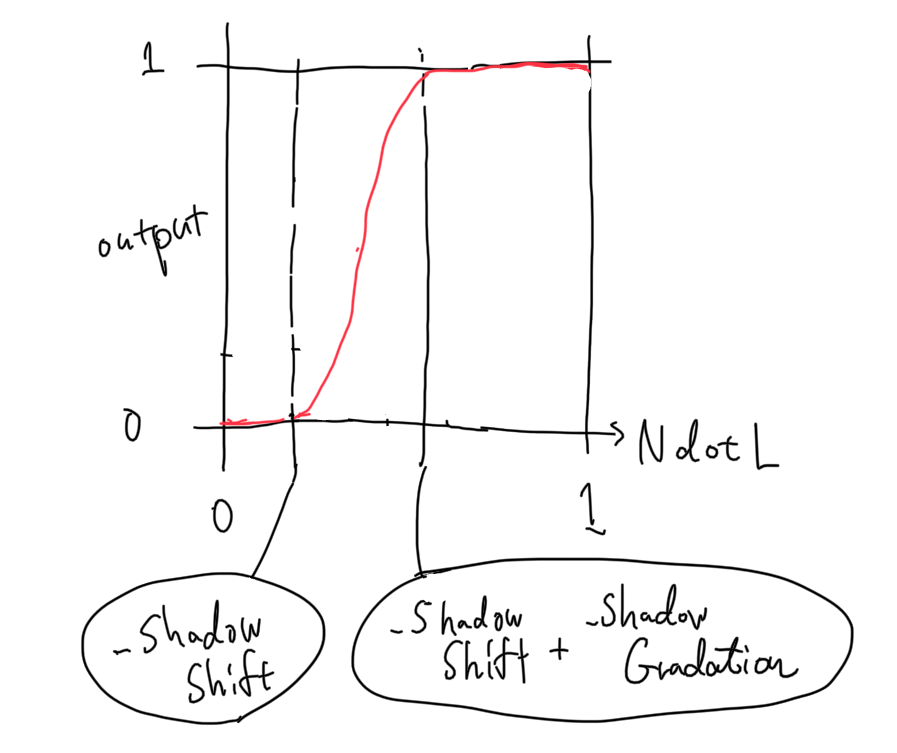 1
output
0
NdotL
0
1
_Shadow
Shift
_Shadow _Shadow
Shift + Gradation